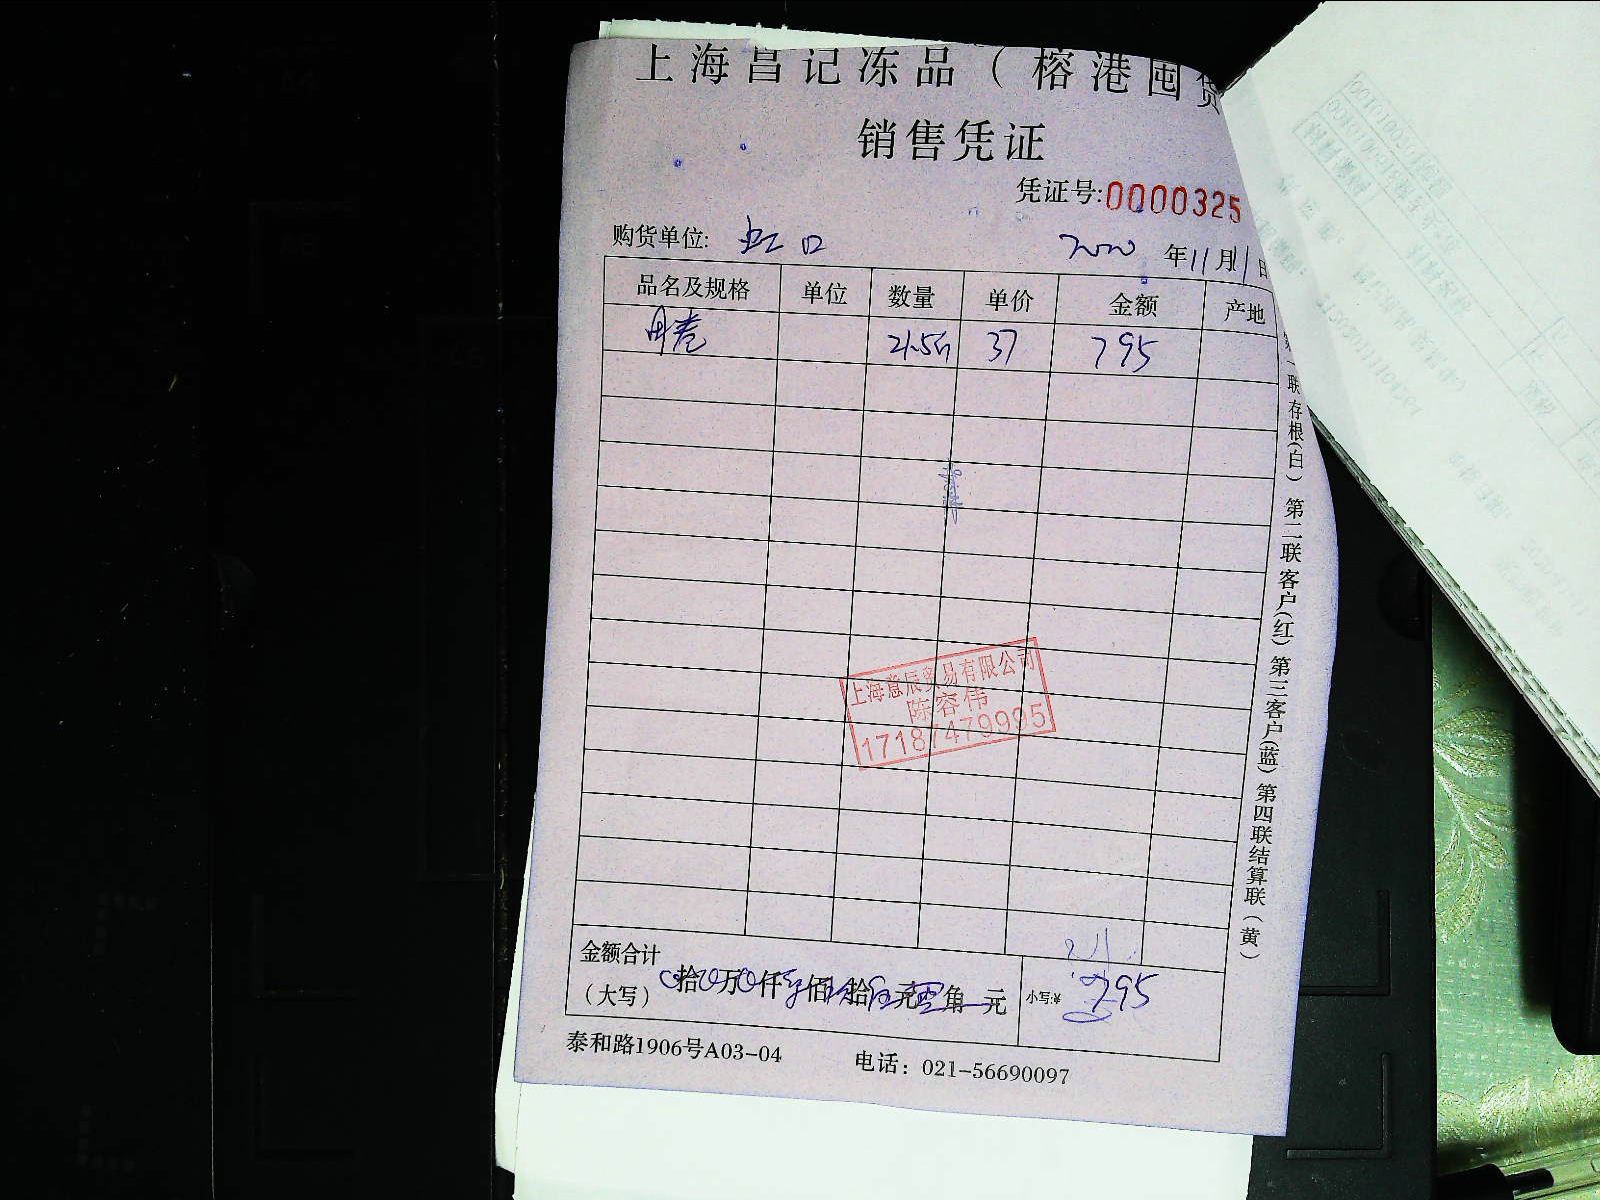 上海昌记冻品（榕港囤货
销售凭证
凭证号:0000325
购货单位: 虹口 2020 年11月1日
品名及规格 单位 数量 单价 金额 产地
卷 21.5斤 37 795
上海意辰贸易有限公司
陈容伟
17187479995
金额合计
（大写） 拾 万 仟 佰 拾 元 角 元 小写:¥ 795
泰和路1906号A03-04 电话：021-56690097
第一联存根（白）第二联客户（红）第三客户（蓝）第四联结算联（黄）